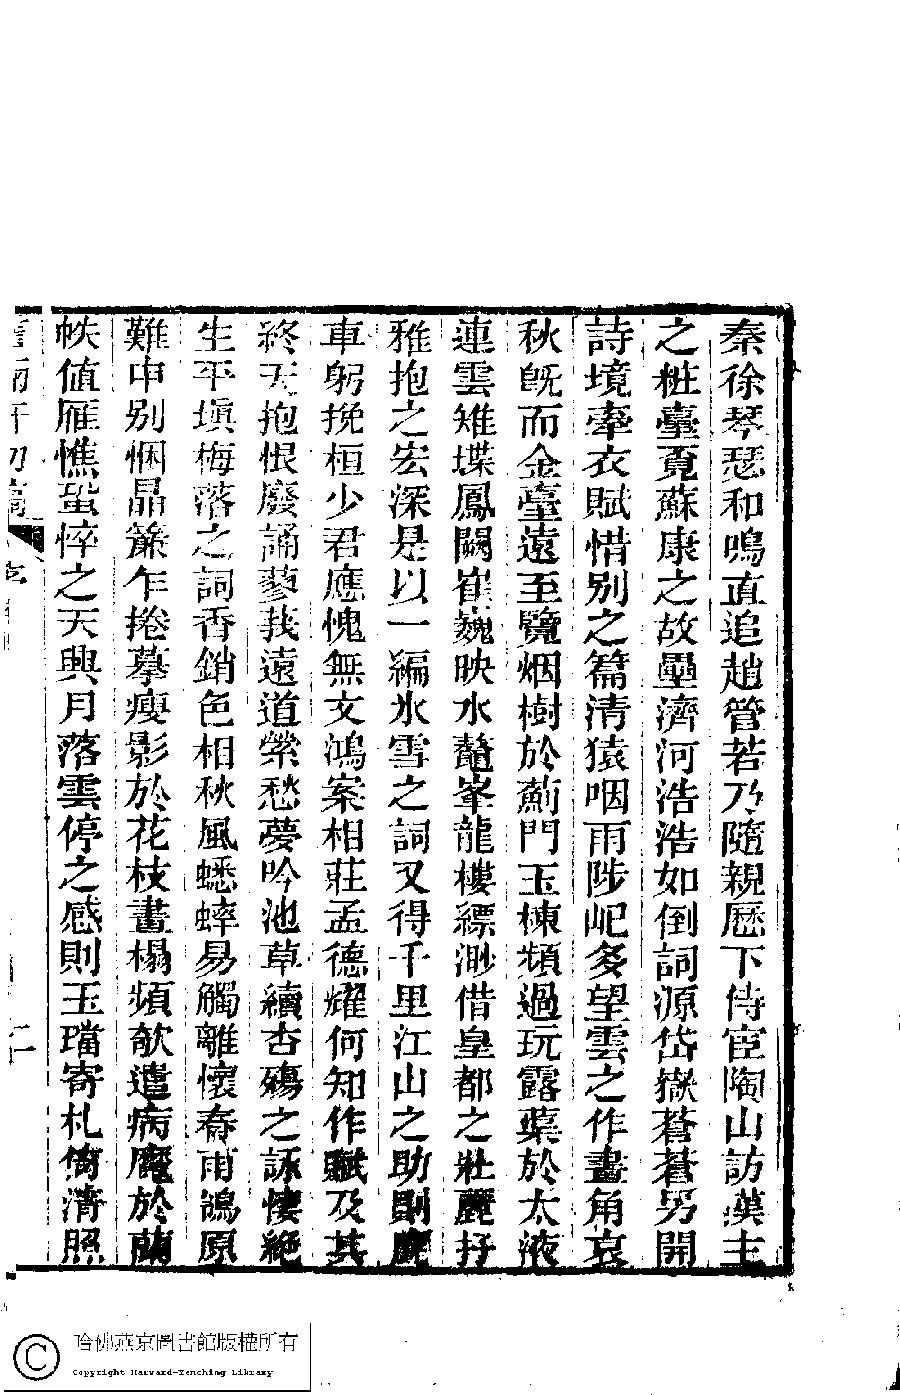 秦徐琴瑟和鳴直追趙管若乃隨親歷下侍宦陶山訪漢主
之粧臺覔蘇康之故壘濟河浩浩如倒詞源岱嶽蒼蒼另開
詩境牽衣賦惜别之篇清猿咽雨陟屺多望雲之作畫角哀
秋旣而金臺遠至覽烟樹於薊門玉棟頻過玩露葉於太液
連雲雉堞鳳闕崔巍映水鼇峯龍樓縹渺借皇都之壯麗抒
雅抱之宏深是以一編氷雪之詞又得千里江山之助則麗
車躬挽桓少君應愧無文鴻案相莊孟德耀何知作賦及其
終天抱恨廢誦蓼莪遠道縈愁夢吟池草續杏殤之詠悽絶
生平塡梅落之詞香銷色相秋風蟋蟀易觸離懷春雨鴒原
難申别悃晶簾乍捲摹瘦影於花枝畫榻頻欹遣病魔於蘭
帙値雁憔蛩悴之天興月落雲停之感則玉璫寄札
照
軒初稿
二
哈佛燕京圖書館版權所有
Copyright Harvard-Yenching Library